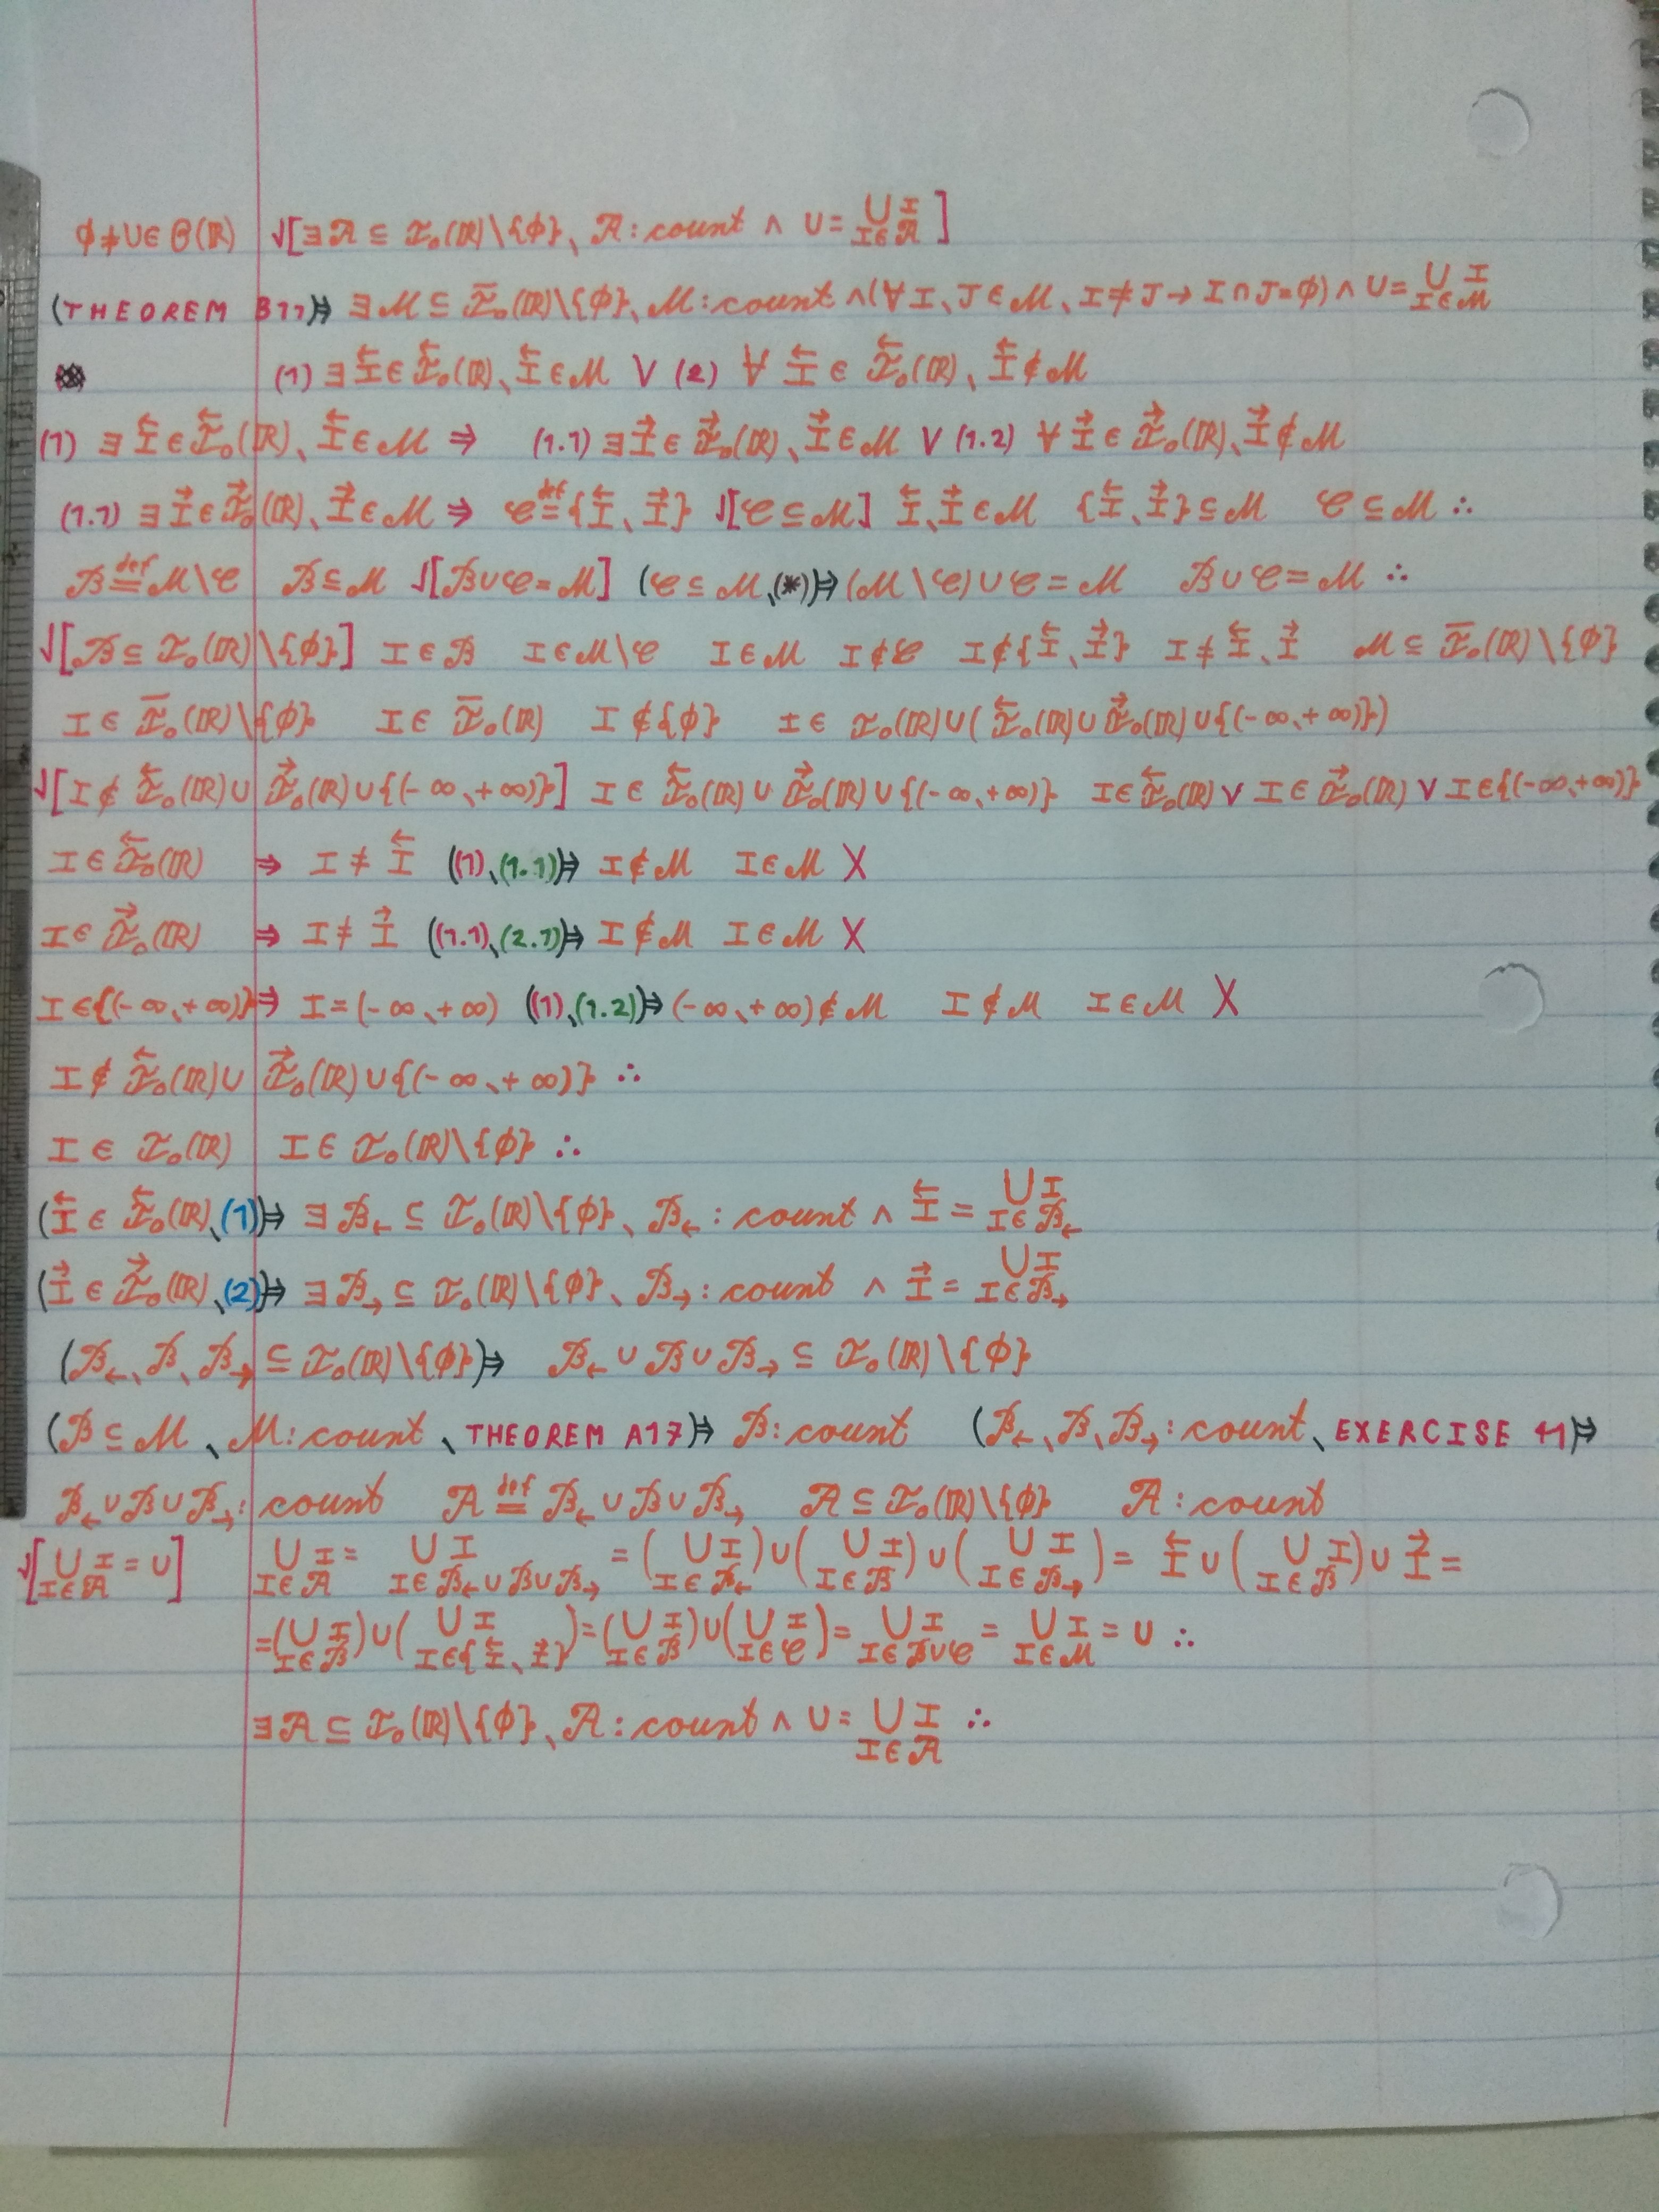 ϕ≠U∈Θ(ℝ) √[∃𝒜 ⊆ ℐ₀(ℝ)\{ϕ}、𝒜: count ∧ U = ⋃_{I∈𝒜} I]
(THEOREM B11)⇒ ∃ℳ ⊆ ℐ̅₀(ℝ)\{ϕ}、ℳ: count ∧ (∀ I、J∈ℳ、I≠J → I∩J=ϕ) ∧ U = ⋃_{I∈ℳ} I
(1) ∃ I⃖ ∈ ℐ⃖₀(ℝ)、I⃖ ∈ ℳ ∨ (2) ∀ I⃖ ∈ ℐ⃖₀(ℝ)、I⃖ ∉ ℳ
(1) ∃ I⃖ ∈ ℐ⃖₀(ℝ)、I⃖ ∈ ℳ ⇒ (1.1) ∃ I⃗ ∈ ℐ⃗₀(ℝ)、I⃗ ∈ ℳ ∨ (1.2) ∀ I⃗ ∈ ℐ⃗₀(ℝ)、I⃗ ∉ ℳ
(1.1) ∃ I⃗ ∈ ℐ⃗₀(ℝ)、I⃗ ∈ ℳ ⇒ 𝒞 ≝ {I⃖、I⃗} √[𝒞 ⊆ ℳ] I⃖、I⃗ ∈ ℳ {I⃖、I⃗} ⊆ ℳ 𝒞 ⊆ ℳ ∴
ℬ ≝ ℳ\𝒞 ℬ ⊆ ℳ √[ℬ∪𝒞 = ℳ] (𝒞 ⊆ ℳ、(*))⇒ (ℳ\𝒞)∪𝒞 = ℳ ℬ∪𝒞 = ℳ ∴
√[ℬ ⊆ ℐ₀(ℝ)\{ϕ}] I∈ℬ I∈ℳ\𝒞 I∈ℳ I∉𝒞 I∉{I⃖、I⃗} I≠I⃖、I⃗ ℳ ⊆ ℐ̅₀(ℝ)\{ϕ}
I ∈ ℐ̅₀(ℝ)\{ϕ} I ∈ ℐ̅₀(ℝ) I ∉ {ϕ} I ∈ ℐ₀(ℝ)∪(ℐ⃖₀(ℝ)∪ℐ⃗₀(ℝ)∪{(-∞、+∞)})
√[I ∉ ℐ⃖₀(ℝ)∪ℐ⃗₀(ℝ)∪{(-∞、+∞)}] I ∈ ℐ⃖₀(ℝ)∪ℐ⃗₀(ℝ)∪{(-∞、+∞)} I∈ℐ⃖₀(ℝ) ∨ I∈ℐ⃗₀(ℝ) ∨ I∈{(-∞、+∞)}
I ∈ ℐ⃖₀(ℝ) ⇒ I ≠ I⃖ ((1)、(1.1))⇒ I∉ℳ I∈ℳ X
I ∈ ℐ⃗₀(ℝ) ⇒ I ≠ I⃗ ((1.1)、(2.1))⇒ I∉ℳ I∈ℳ X
I∈{(-∞、+∞)} ⇒ I = (-∞、+∞) ((1)、(1.2))⇒ (-∞、+∞)∉ℳ I∉ℳ I∈ℳ X
I ∉ ℐ⃖₀(ℝ)∪ℐ⃗₀(ℝ)∪{(-∞、+∞)} ∴
I ∈ ℐ₀(ℝ) I ∈ ℐ₀(ℝ)\{ϕ} ∴
(I⃖ ∈ ℐ⃖₀(ℝ)、(1))⇒ ∃ℬ← ⊆ ℐ₀(ℝ)\{ϕ}、ℬ←: count ∧ I⃖ = ⋃_{I∈ℬ←} I
(I⃗ ∈ ℐ⃗₀(ℝ)、(2))⇒ ∃ℬ→ ⊆ ℐ₀(ℝ)\{ϕ}、ℬ→: count ∧ I⃗ = ⋃_{I∈ℬ→} I
(ℬ←、ℬ、ℬ→ ⊆ ℐ₀(ℝ)\{ϕ})⇒ ℬ←∪ℬ∪ℬ→ ⊆ ℐ₀(ℝ)\{ϕ}
(ℬ ⊆ ℳ、ℳ: count、THEOREM A17)⇒ ℬ: count (ℬ←、ℬ、ℬ→: count、EXERCISE 41)⇒
ℬ←∪ℬ∪ℬ→: count 𝒜 ≝ ℬ←∪ℬ∪ℬ→ 𝒜 ⊆ ℐ₀(ℝ)\{ϕ} 𝒜: count
√[⋃_{I∈𝒜} I = U] ⋃_{I∈𝒜} I = ⋃_{I∈ℬ←∪ℬ∪ℬ→} I = (⋃_{I∈ℬ←} I)∪(⋃_{I∈ℬ} I)∪(⋃_{I∈ℬ→} I) = I⃖∪(⋃_{I∈ℬ} I)∪I⃗ =
= (⋃_{I∈ℬ} I)∪(⋃_{I∈{I⃖、I⃗}} I) = (⋃_{I∈ℬ} I)∪(⋃_{I∈𝒞} I) = ⋃_{I∈ℬ∪𝒞} I = ⋃_{I∈ℳ} I = U ∴
∃𝒜 ⊆ ℐ₀(ℝ)\{ϕ}、𝒜: count ∧ U = ⋃_{I∈𝒜} I ∴